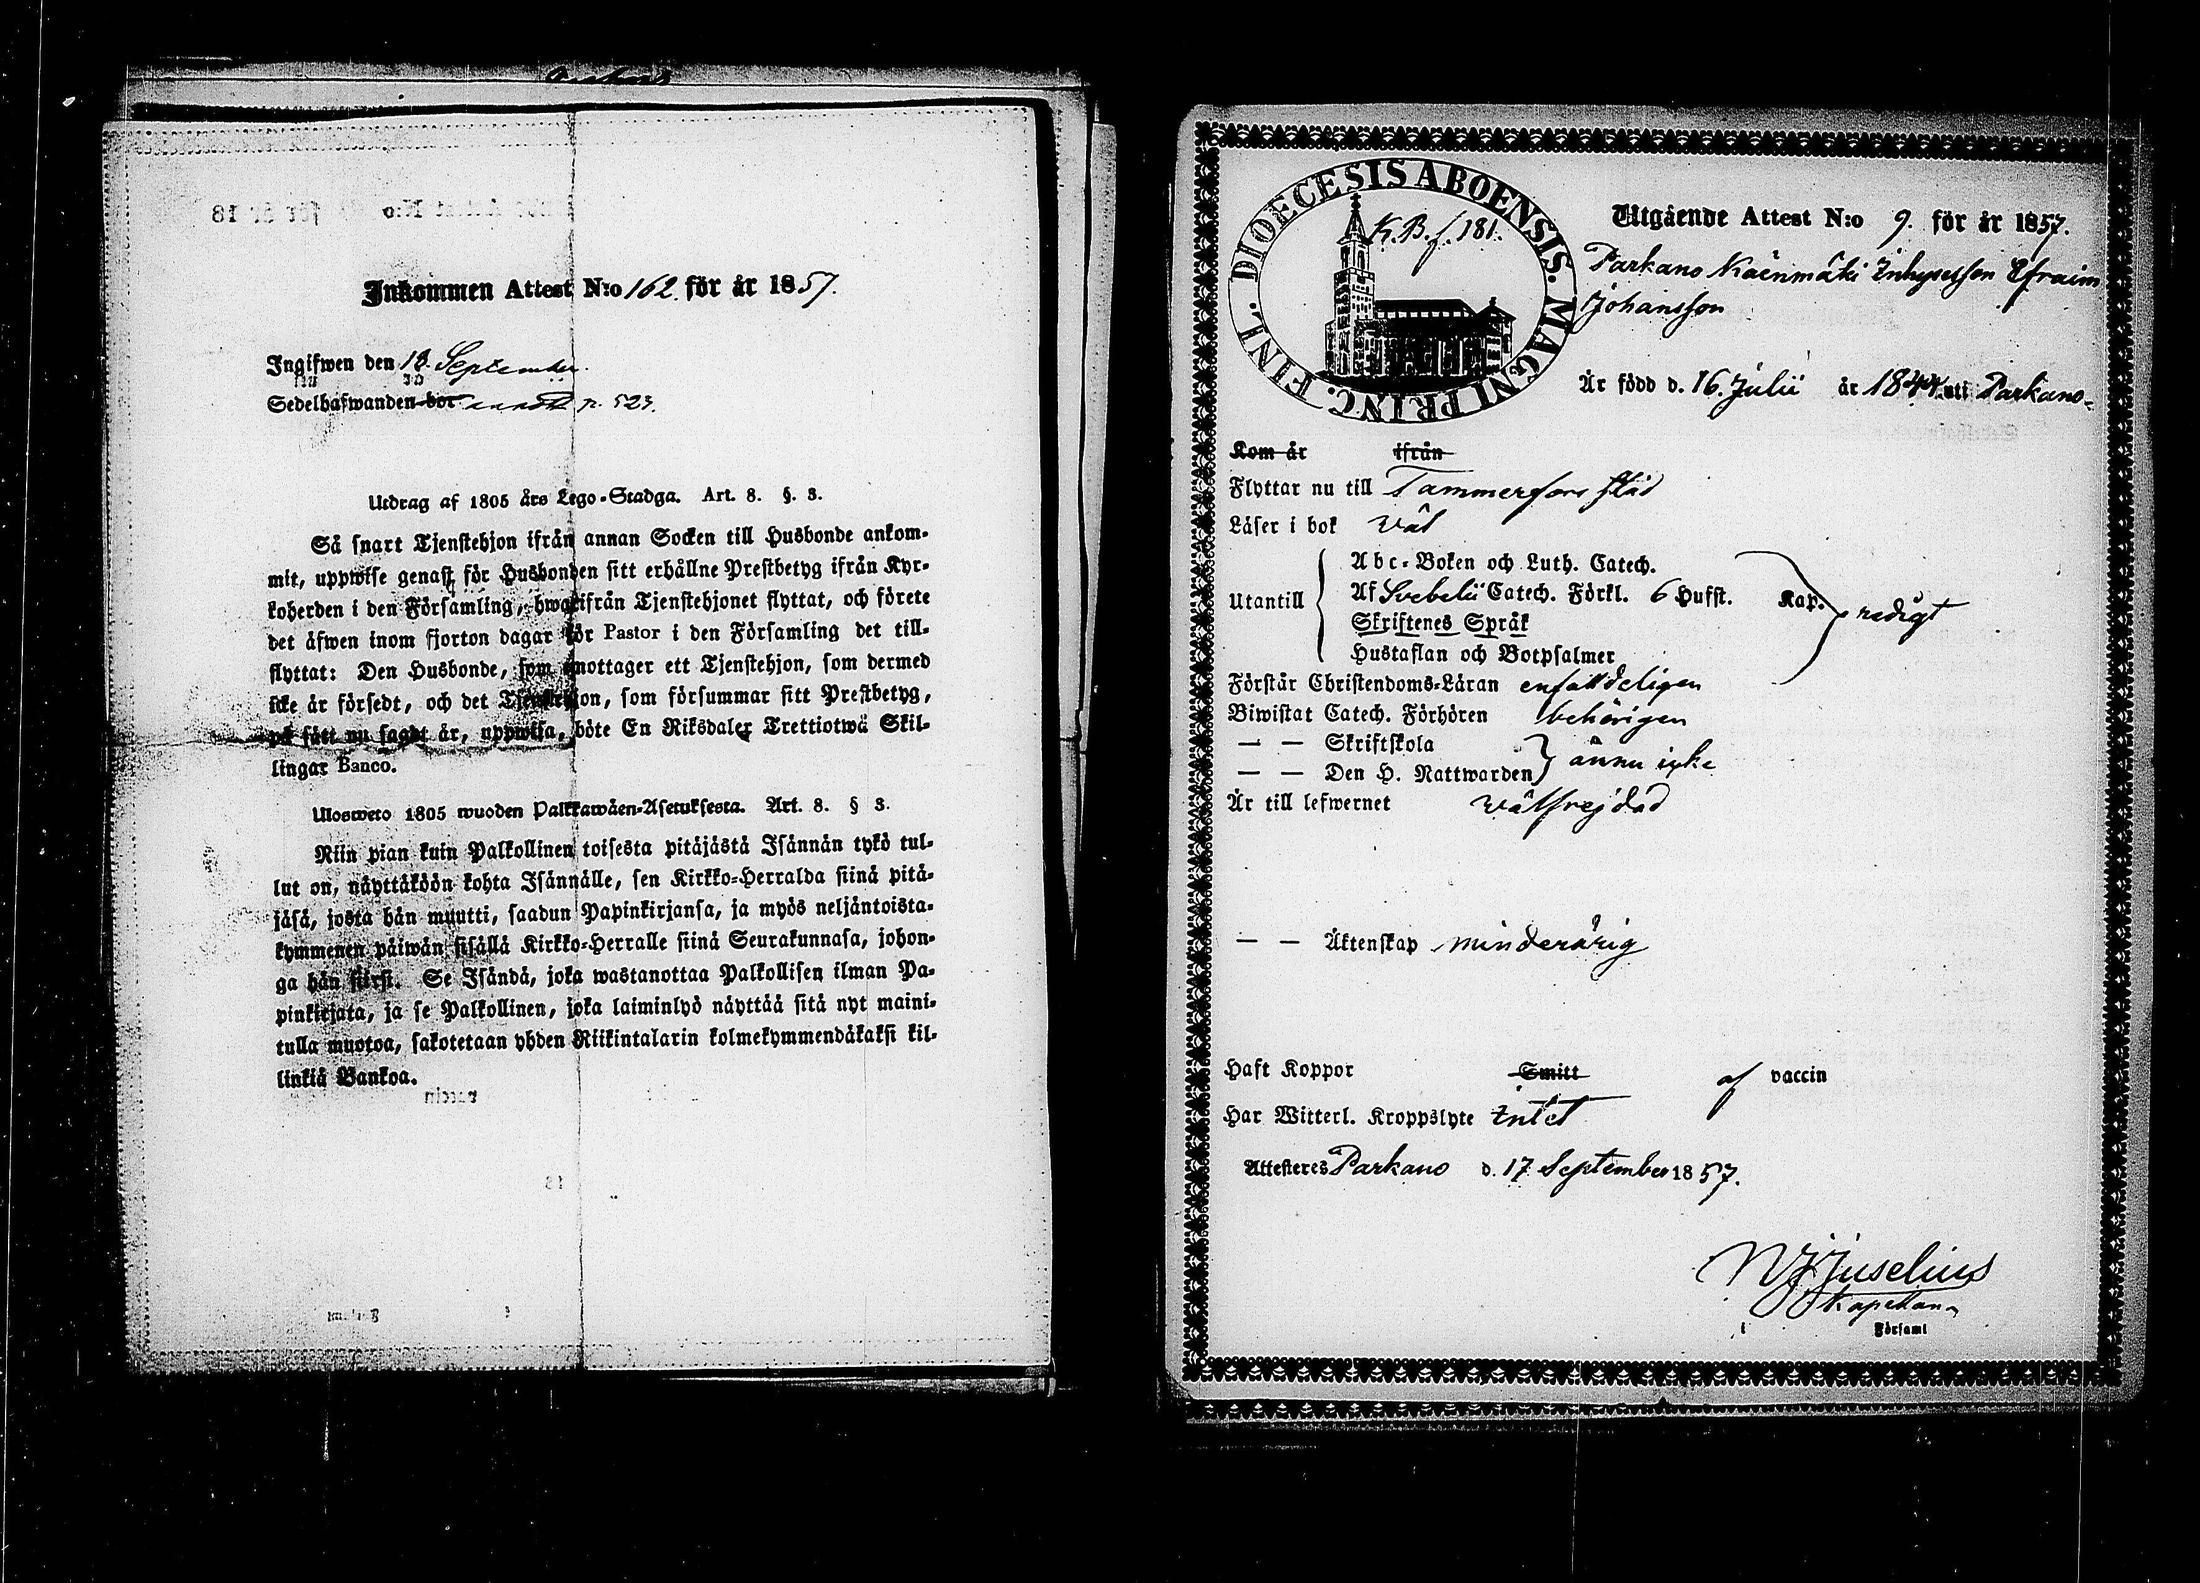 Inkommen Attest N:o 162. för år 1857.
Ingifwen den 18. September
Sedelhafwanden bor p. 523.
Utdrag af 1805 års Lego-Stadga. Art. 8. §. 3.
Så snart Tjenstehjon ifrån annan Socken till Husbonde ankom-
mit, uppwise genast för Husbonden sitt erhållne Prestbetyg ifrån Kyr-
koherden i den Församling, hwarifrån Tjenstehjonet flyttat, och förete
det äfwen inom fjorton dagar för Pastor i den Församling det till-
flyttat: Den Husbonde, som emottager ett Tjenstehjon, som dermed
icke är försedt, och det Tjenstehjon, som försummar sitt Prestbetyg,
på sätt nu sagdt är, uppwisa, böte En Riksdaler Trettiotwå Skil-
lingar Banco.
Ulosweto 1805 wuoden Palkkawäen-Asetuksesta. Art. 8. § 3.
Niin pian kuin Palkollinen toisesta pitäjästä Isännän tykö tul-
lut on, näyttäköön kohta Isännälle, sen Kirkko-Herralda siinä pitä-
jäsä, josta hän muutti, saadun Papinkirjansa, ja myös neljäntoista-
kymmenen päiwän sisällä Kirkko-Herralle siinä Seurakunnasa, johon-
ga hän siirsi. Se Isändä, joka wastanottaa Palkollisen ilman Pa-
pinkirjata, ja se Palkollinen, joka laiminlyö näyttää sitä nyt maini-
tulla muotoa, sakotetaan yhden Riikintalarin kolmekymmendäkaksi kil-
linkiä Bankoa.
DIOECESIS ABOENSIS. MAGNI PRINC. FINL.
K.B. f. 181.
Utgående Attest N:o 9. för år 1857.
Parkano Käenmäki Inhysesson Efraim
Johansson
Är född d. 16. Julii år 1844 uti Parkano
Kom år ifrån
Flyttar nu till Tammerfors stad
Läser i bok väl
Utantill
Abc-Boken och Luth. Catech.
Af Svebelii Catech. Förkl. 6 Hufst. Kap. redigt
Skriftenes Språk
Hustaflan och Botpsalmer
Förstår Christendoms-Läran enfalldeligen
Biwistat Catech. Förhören behörigen
— — Skriftskola
— — Den H. Nattwarden ännu icke
Är till lefwernet välfrejdad
— — Äktenskap minderårig
Haft Koppor Smitt af vaccin
Har Witterl. Kroppslyte Intet
Attesteres Parkano d. 17 September 1857.
Juselius
Kapellan
i Församl